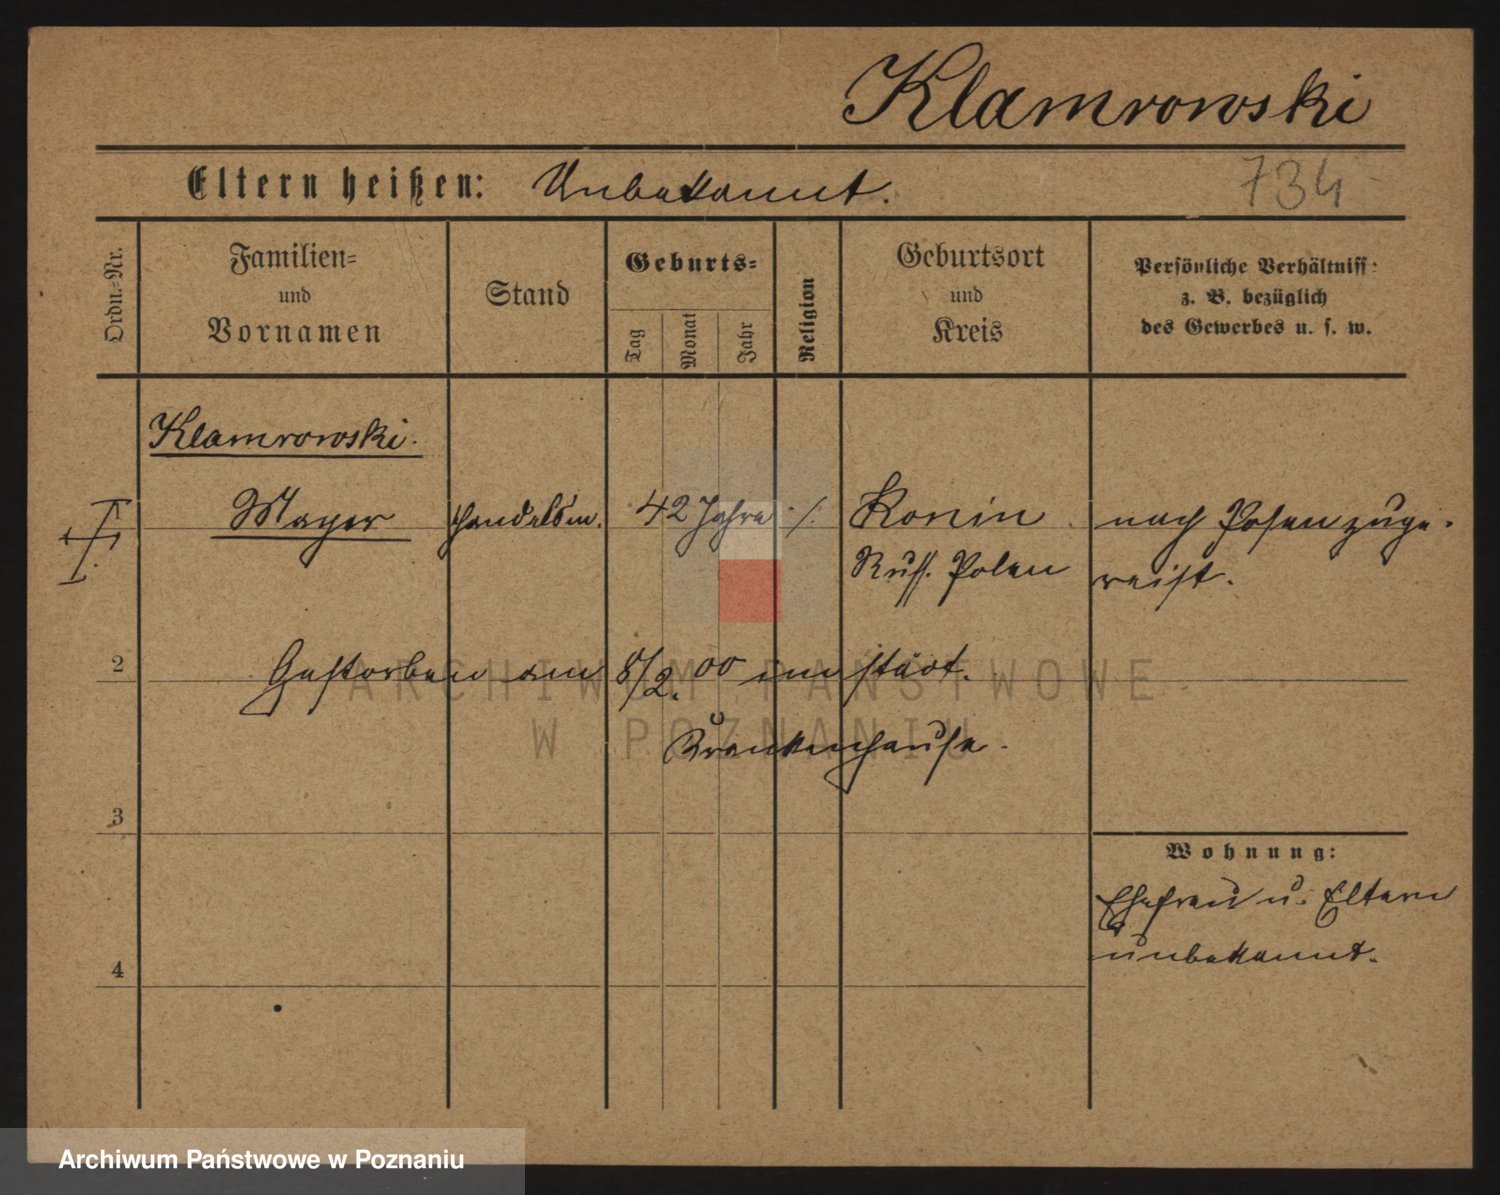 Klamrowski
Eltern heißen: Unbekannt.
734
Ordn.=Nr.
Familien=
und
Vornamen
Stand
Geburts=
Tag
Monat
Jahr
Religion
Geburtsort
und
Kreis
Persönliche Verhältniss:
z. B. bezüglich
des Gewerbes u. s. w.
Klamrowski.
1 Mayer Handelsm. 42 Jahre ·/. Konin nach Posen zuge-
Russ. Polen reist.
2 Gestorben am 8/2.00 im städt.
Krankenhause.
3
Wohnung:
Ehefrau u. Eltern
unbekannt.
4
ARCHIWUM PAŃSTWOWE
W POZNANIU
Archiwum Państwowe w Poznaniu